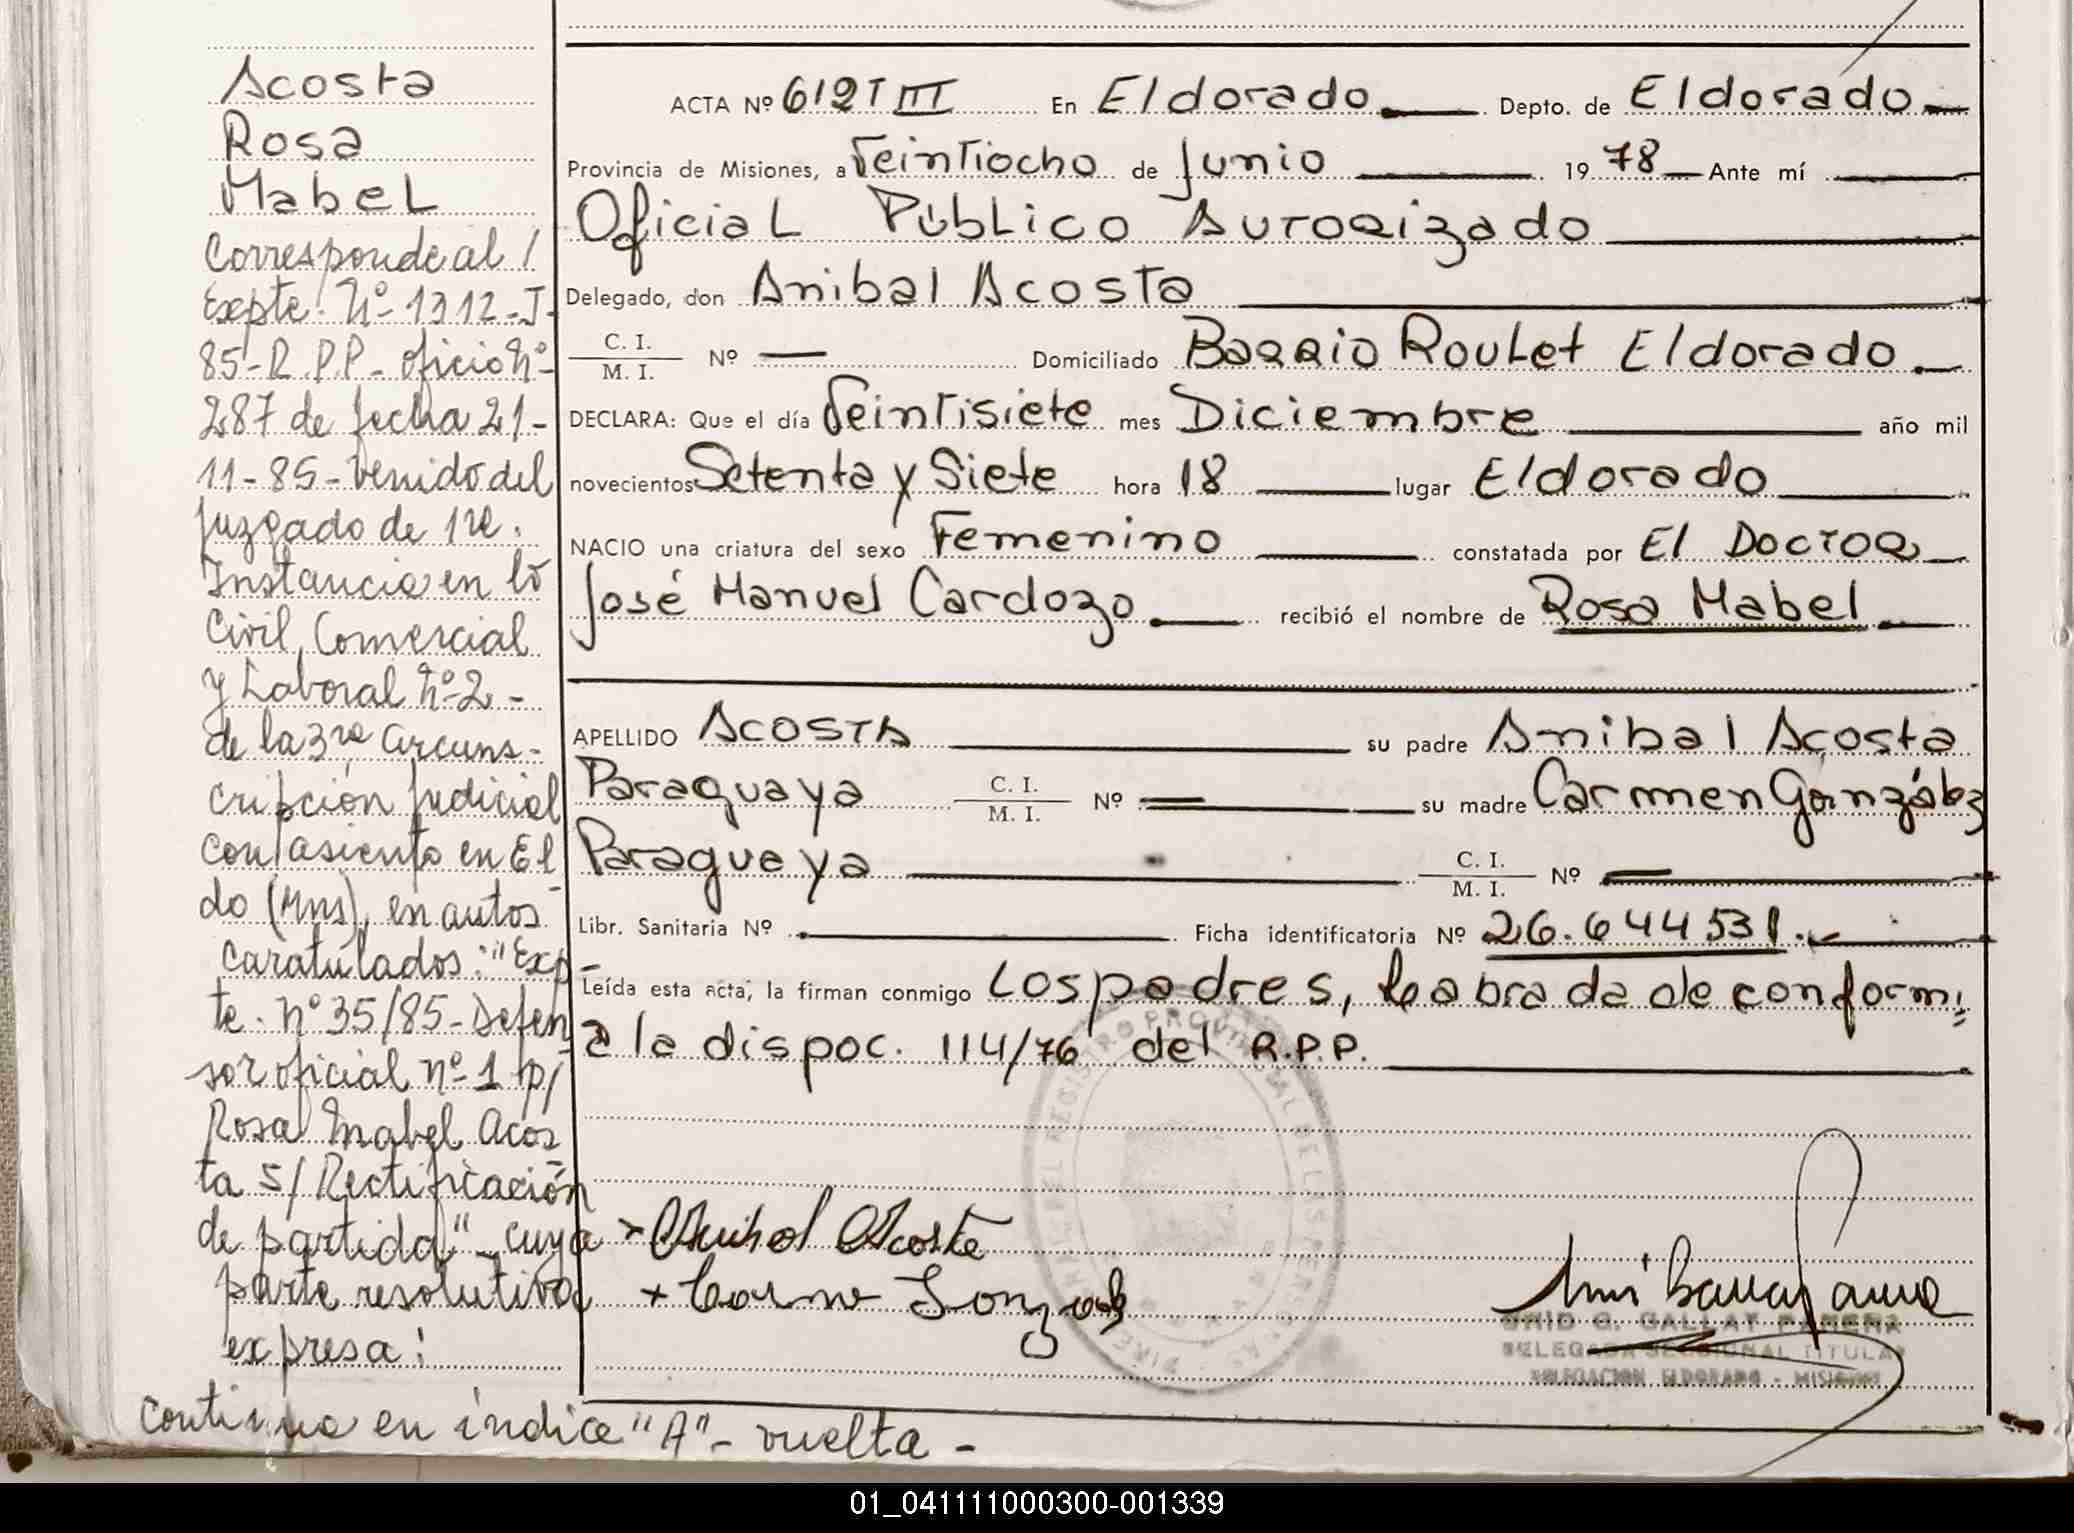 Acosta
Rosa
Mabel
Corresponde al /
Expte. Nº 1312-J-
85-R.P.P- oficio Nº
287 de fecha 21-
11-85- venido del
Juzgado de 1ra.
Instancia en lo
Civil, Comercial
y Laboral Nº 2 -
de la 3ra Circuns-
cripción Judicial
con asiento en El
do (Mns), en autos
caratulados: "Exp-
te. nº 35/85- Defen
sor oficial nº 1 p/
Rosa Mabel Acos
ta S/ Rectificación
de partida" - cuya
parte resolutiva
expresa:
continua en índice "A" - vuelta -
ACTA Nº 612 T III En Eldorado Depto. de Eldorado
Provincia de Misiones, a Veintiocho de Junio 1978 Ante mí
Oficial Público Autorizado
Delegado, don Anibal Acosta
C. I.
M. I. Nº — Domiciliado Barrio Roulet Eldorado.
DECLARA: Que el día Veintisiete mes Diciembre año mil
novecientos Setenta y Siete hora 18 lugar Eldorado
NACIO una criatura del sexo Femenino constatada por El Doctor
José Manuel Cardozo recibió el nombre de Rosa Mabel
APELLIDO Acosta su padre Anibal Acosta
Paraguaya C. I. M. I. Nº — su madre Carmen González
Paraguaya C. I. M. I. Nº —
Libr. Sanitaria Nº Ficha identificatoria Nº 26.644531.
Leída esta acta, la firman conmigo Los padres, Labrada de conformi
a la dispoc. 114/76 del R.P.P.
x Anibal Acosta
x Carmen Gonzalez
G. GALLAT PARERA
DELEGADA SECCIONAL TITULAR
DELEGACION ELDORADO - MISIONES
01_041111000300-001339